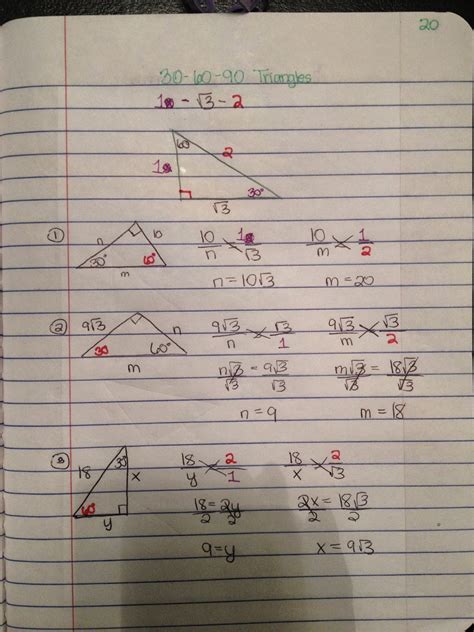 20
30-60-90 Triangles
1 - √3 - 2
60
1
2
30°
√3
① n 10 30° 60° m
10/n = 1/√3
10/m = 1/2
n = 10√3
m = 20
② 9√3 n 30 60° m
9√3/n = √3/1
9√3/m = √3/2
n√3/√3 = 9√3/√3
m√3/√3 = 18√3/√3
n = 9
m = 18
③ 18 30 x 60 y
18/y 2/1
18/x 2/√3
18/2 = 2y/2
2x/2 = 18√3/2
9 = y
x = 9√3